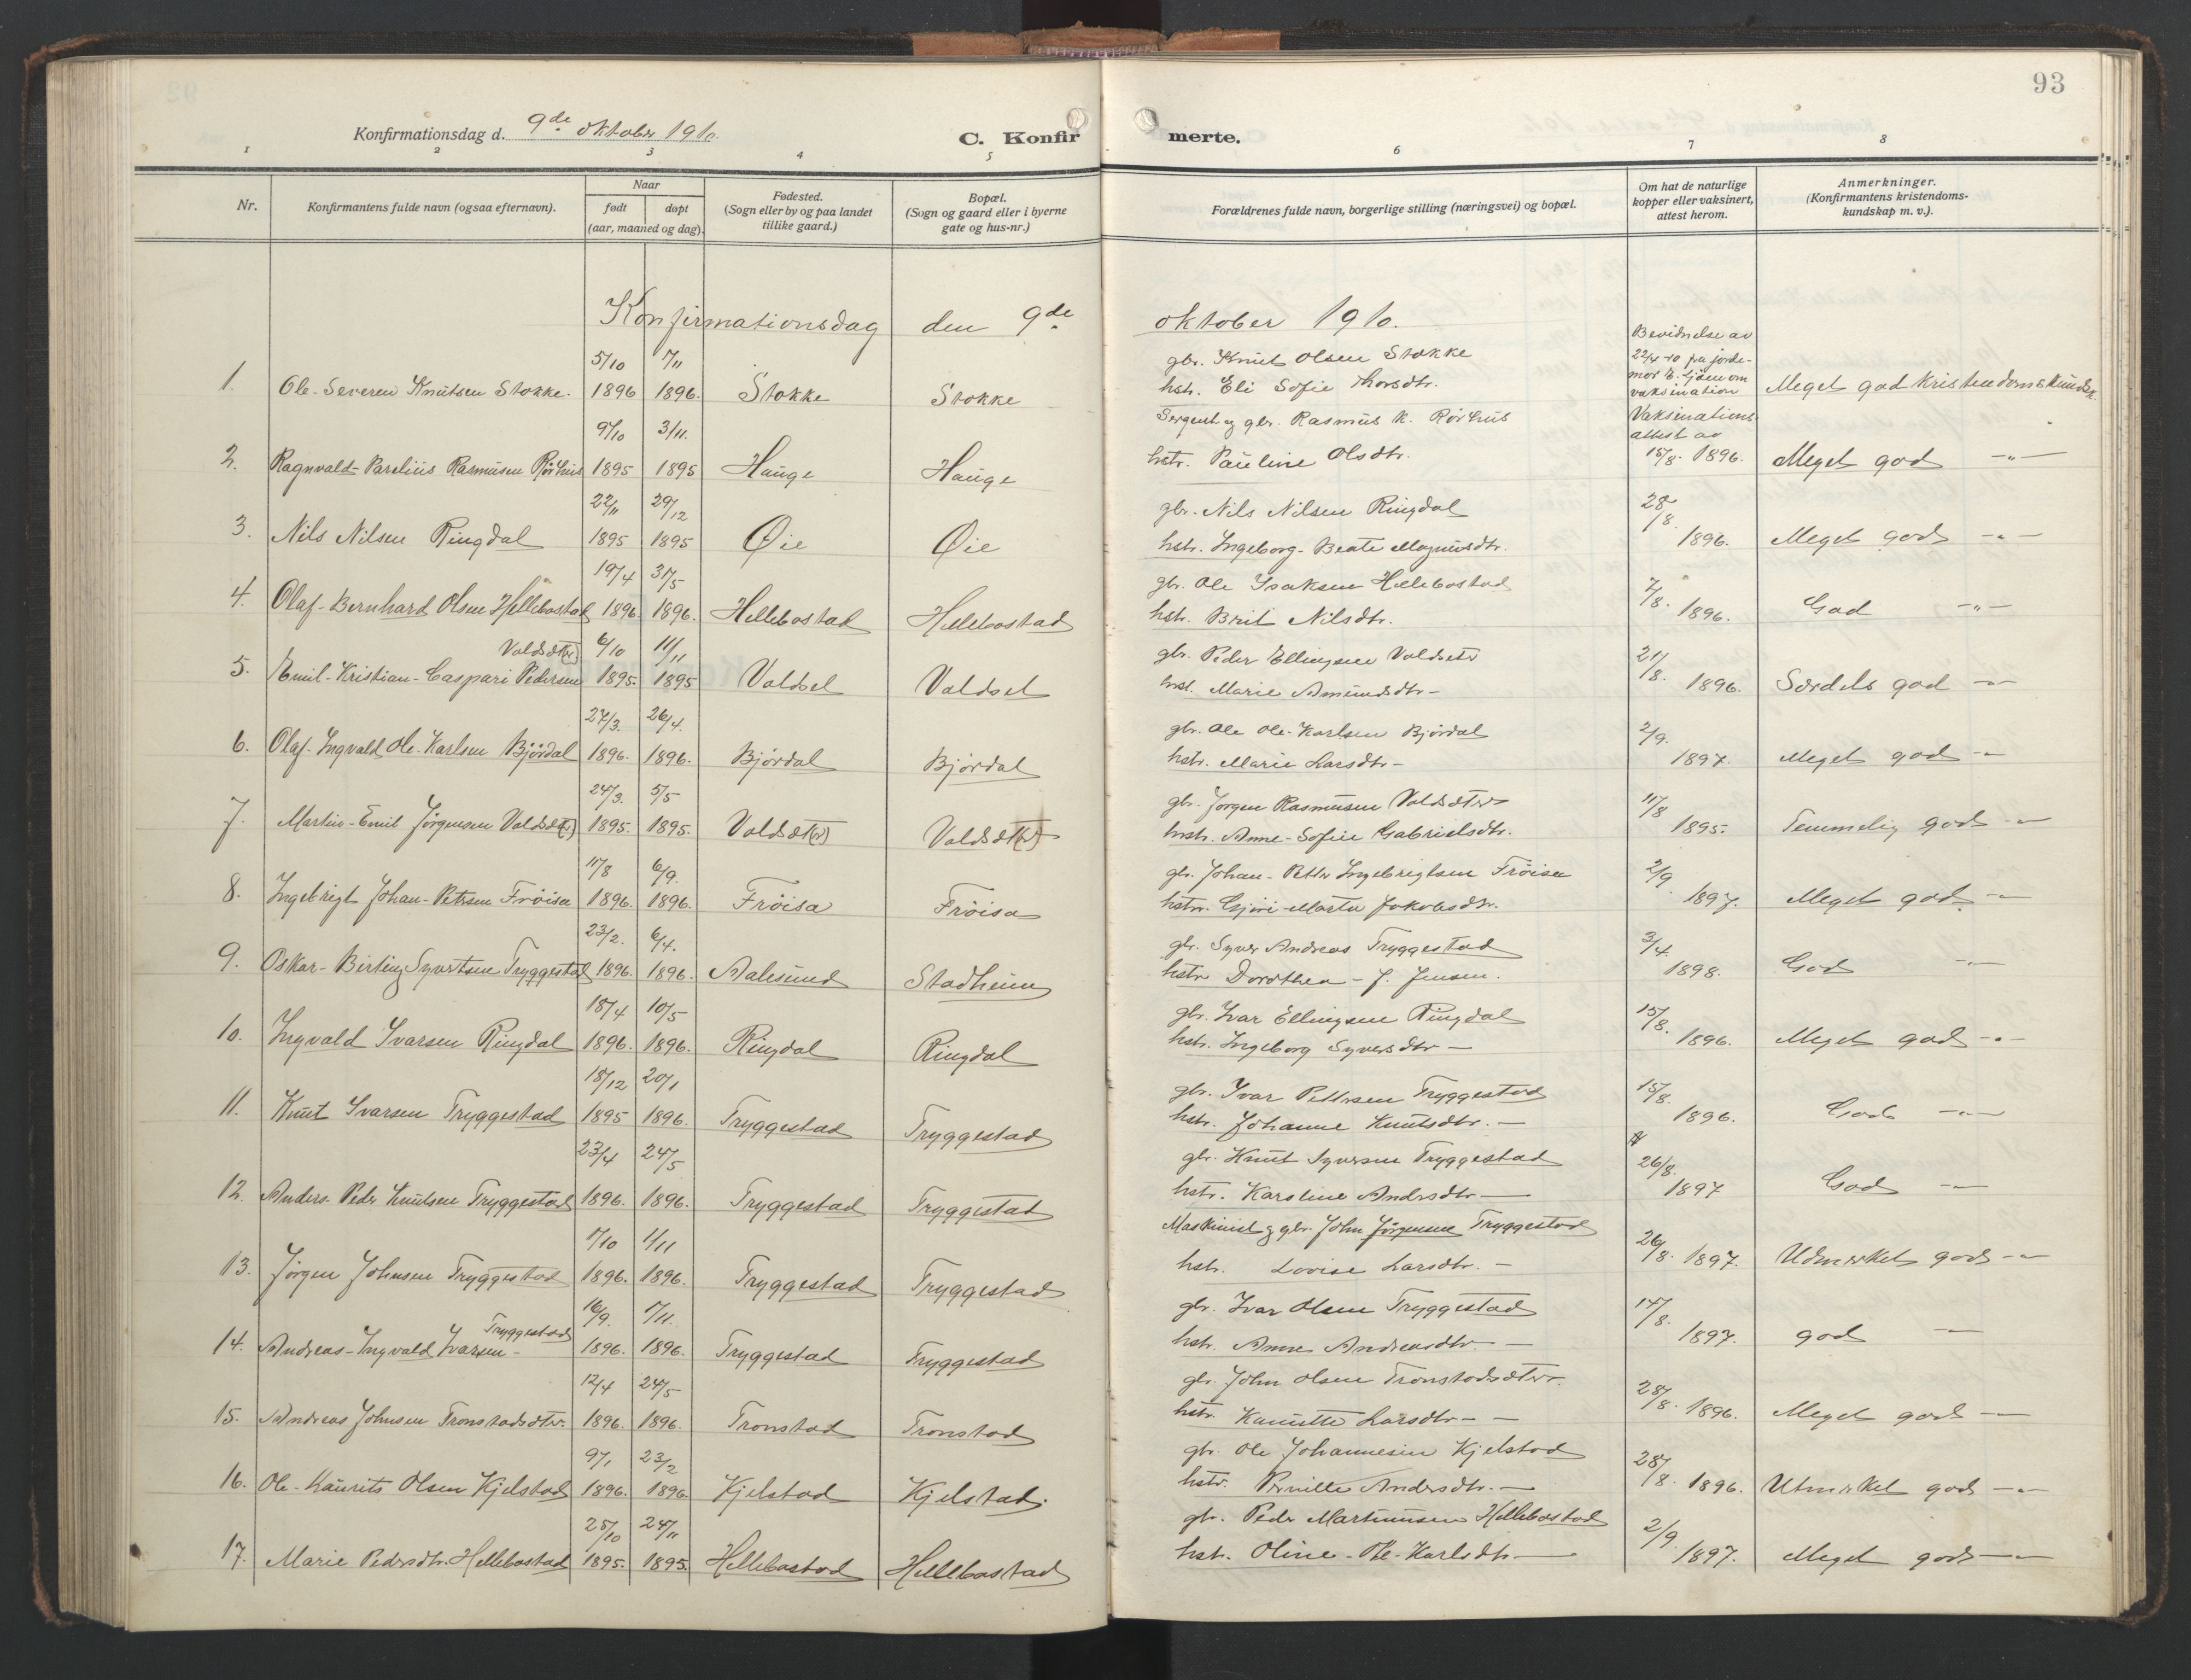 93
Konfirmationsdag d. 9de oktober 1910.
C. Konfirmerte.
1 2 3 4 5 6 7 8
Nr.
Konfirmantens fulde navn (ogsaa efternavn).
Naar
født døpt
(aar, maaned og dag).
Fødested.
(Sogn eller by og paa landet
tillike gaard.)
Bopæl.
(Sogn og gaard eller i byerne
gate og hus-nr.)
Forældrenes fulde navn, borgerlige stilling (næringsvei) og bopæl.
Om hat de naturlige
kopper eller vaksinert,
attest herom.
Anmerkninger.
(Konfirmantens kristendoms-
kundskap m. v.).
Konfirmationsdag den 9de oktober 1910.
5/10 7/11 gbr. Knut Olsen Stokke Bevidnelse av 22/4 -10 fra jorde-
1. Ole-Severen Knutsen Stokke. 1896 1896. Stokke Stokke hstr. Eli Sofie Thorsdtr. mor vaksination Meget god Kristendomskundsk.
9/10 3/11. Sergent og gbr. Rasmus K. Rörhus Vaksinations attest av
2. Ragnvald-Parelius Rasmusen Rörhus 1895 1895 Hauge Hauge hstr. Pauline Olsdtr. 15/8. 1896. Meget god -"-
22/11 29/12 gbr. Nils Nilsen Ringdal 28/8.
3. Nils Nilsen Ringdal 1895 1895 Øie Øie hstr. Ingeborg-Beate Magnusdtr. 1896. Meget god -"-
19/4 31/5 gbr. Ole Isaksen Hellebostad
4. Olaf-Bernhard Olsen Hellebostad 1896. 1896. Hellebostad Hellebostad hstr. Brit Nilsdtr. 7/8. 1896. God -"-
Voldsæt(er) 6/10 11/11 gbr. Peder Ellingsen Voldsetr 21/8.
5. Emil-Kristian-Caspari Pedersen 1895. 1895 Voldset Voldset hst. Marie Amundsdtr- 1896. Særdeles god -"-
27/3. 26/4. gbr. Ole Ole-Karlsen Bjørdal 2/9.
6. Olaf-Ingvald Ole-Karlsen Bjørdal 1896. 1896. Bjørdal Bjørdal hstr. Marie Larsdtr- 1897. Meget god -"-
24/3. 5/5 gbr. Jørgen Rasmusen Voldsætr 11/8
7. Martin-Emil Jørgensen Voldsæt(r) 1895. 1895. Voldsæt(r) Voldsæt(r) hustr. Anne-Sofie Gabrielsdtr. 1895. Temmelig god -"-
11/8 6/9. gbr. Johan-Petter Ingebrigtsen Frøisa 2/9
8. Ingebrigt Johan-Petersen Frøisa 1896. 1896. Frøisa Frøisa hstr. Gjøri-Marta Jakobsdtr. 1897. Meget god -"-
23/2. 6/4. gbr. Syver Andreas Tryggestad 3/4
9. Oskar-Birting Syvertsen Tryggestad 1896. 1896. Aalesund Stadheim hstr Dorothea-J. Jensen. 1898. God -"-
18/4 10/5 gbr. Ivar Ellingsen Ringdal 15/8.
10. Ingvald Ivarsen Ringdal 1896. 1896. Ringdal Ringdal hstr. Ingeborg Syversdtr- 1896. Meget god -"-
18/12 20/1 gbr. Ivar Pettersen Tryggestad 15/8.
11. Knut Ivarsen Tryggestad 1895 1896. Tryggestad Tryggestad hstr. Johanne Knutsdtr.- 1896. God -"-
23/4 24/5 gbr. Knut Syversen Tryggestad 26/8.
12. Anders-Peder Knutsen Tryggestad 1896. 1896. Tryggestad Tryggestad hstr. Karoline Andrsdtr- 1897 God -"-
7/10 1/11 Maskinist og gbr. John Jørgensen Tryggestad
13. Jørgen Johnsen Tryggestad 1896. 1896. Tryggestad Tryggestad hstr. Lovise Larsdtr.- 26/8. 1897. Udmerket god -"-
Tryggestad 16/9. 1/11. gbr. Ivar Olsen Tryggestad 14/8.
14. Andreas-Ingvald Ivarsen- 1896. 1896. Tryggestad Tryggestad hstr. Anne Andreasdtr.- 1897. god -"-
12/4 24/5 gbr. John Olsen Tronstadsætr.
15. Andreas Johnsen Tronstadsætr. 1896. 1896. Tronstad Tronstad hstr. Larsdtr- 28/8. 1896. Meget god -"-
9/1 23/2 gbr. Ole Johannesen Kjelstad
16. Ole-Laurits Olsen Kjelstad 1896. 1896. Kjelstad Kjelstad. hstr. Pernille Andersdtr.- 28/8. 1896. Utmerket god -"-
25/10 24/11 gbr. Peder Martinusen Hellebostad 2/9.
17. Marie Pedersdtr. Hellebostad 1895. 1895. Hellebostad Hellebostad hstr. Oline-Ole-Karlsdtr- 1897. Meget god -"-